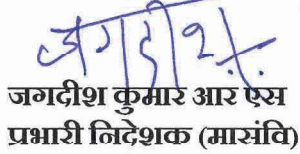 जगदीश
जगदीश कुमार आर एस
प्रभारी निदेशक (मासंवि)